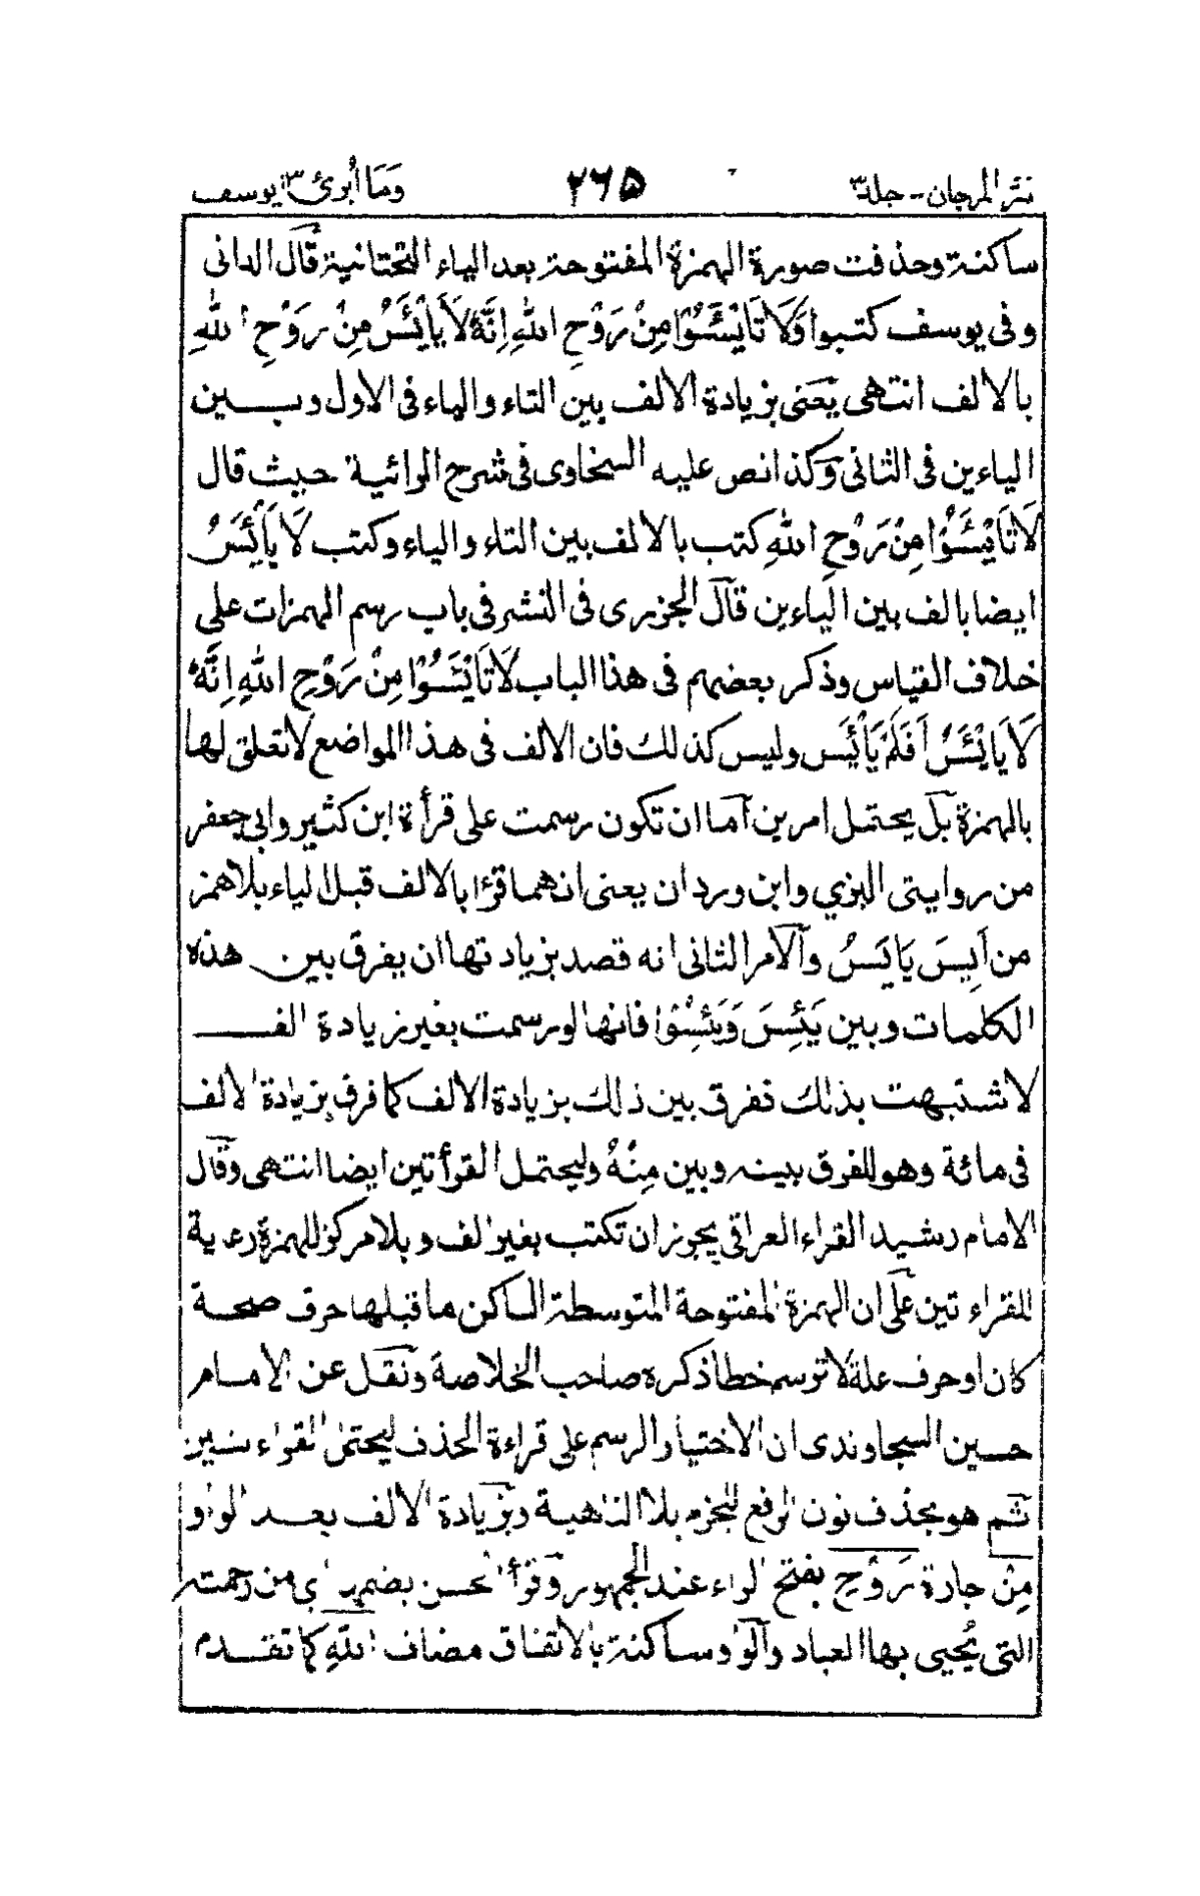 نثر المرجان - جلد ٣ ٢٦٥ وَمَا أُبَرِّئُ ١٣ يوسف
ساكنة وحذفت صورة الهمزة المفتوحة بعد الياء التحتانية قال الدانى
وفى يوسف كتبوا وَلَا تَايْـَٔسُوْا مِنْ رَوْحِ اللهِ اِنَّهٗ لَا يَايْـَٔسُ مِنْ رَوْحِ اللهِ
بالالف انتهى يعنى بزيادة الالف بين التاء والياء فى الاول وبين
الياءين فى الثانى وكذا نص عليه السخاوى فى شرح الرائية حيث قال
لَا تَايْـَٔسُوْا مِنْ رَوْحِ اللهِ كتب بالالف بين التاء والياء وكتب لَا يَايْـَٔسُ
ايضا بالف بين الياءين قال الجزرى فى النشر فى باب رسم الهمزات على
خلاف القياس وذكر بعضهم فى هذا الباب لَا تَايْـَٔسُوْا مِنْ رَوْحِ اللهِ اِنَّهٗ
لَا يَايْـَٔسُ اَفَلَمْ يَايْـَٔسِ وليس كذلك فان الالف فى هذا المواضع لا تعلق لها
بالهمزة بل يحتمل امرين اما ان تكون رسمت على قرأة ابن كثير وابى جعفر
من روايتى البزي وابن وردان يعنى انهما قرءا بالالف قبل الياء بلا همز
من اَيِسَ يَايَسُ والامر الثانى انه قصد بزيادتها ان يفرق بين هذه
الكلمات وبين يَئِسَ وَيَئِسُوْا فانها لو رسمت بغير زيادة الف
لاشتبهت بذلك ففرق بين ذلك بزيادة الالف كما فرق بزيادة الالف
فى مائة وهو للفرق بينه وبين مِنْهُ وليحتمل القرأتين ايضا انتهى وقال
الامام رشيد القراء العراقى يجوز ان تكتب بغير الف وبلا مركز للهمزة رعاية
للقراءتين على ان الهمزة المفتوحة المتوسطة الساكن ما قبلها حرف صحة
كان او حرف علة لا ترسم خطا ذكره صاحب الخلاصة ونقل عن الامام
حسين السجاوندى ان الاختيار الرسم على قراءة الحذف ليحتمل القراءتين
ثم هو بحذف نون الرفع للجزم بلا الناهية وبزيادة الالف بعد الواو
مِنْ جارة رَوْحِ بفتح الراء عند الجمهور وقرأ الحسن بضمها اى من رحمته
التى يُحيى بها العباد والواو ساكنة بالاتفاق مضاف اللهِ كما تقدم